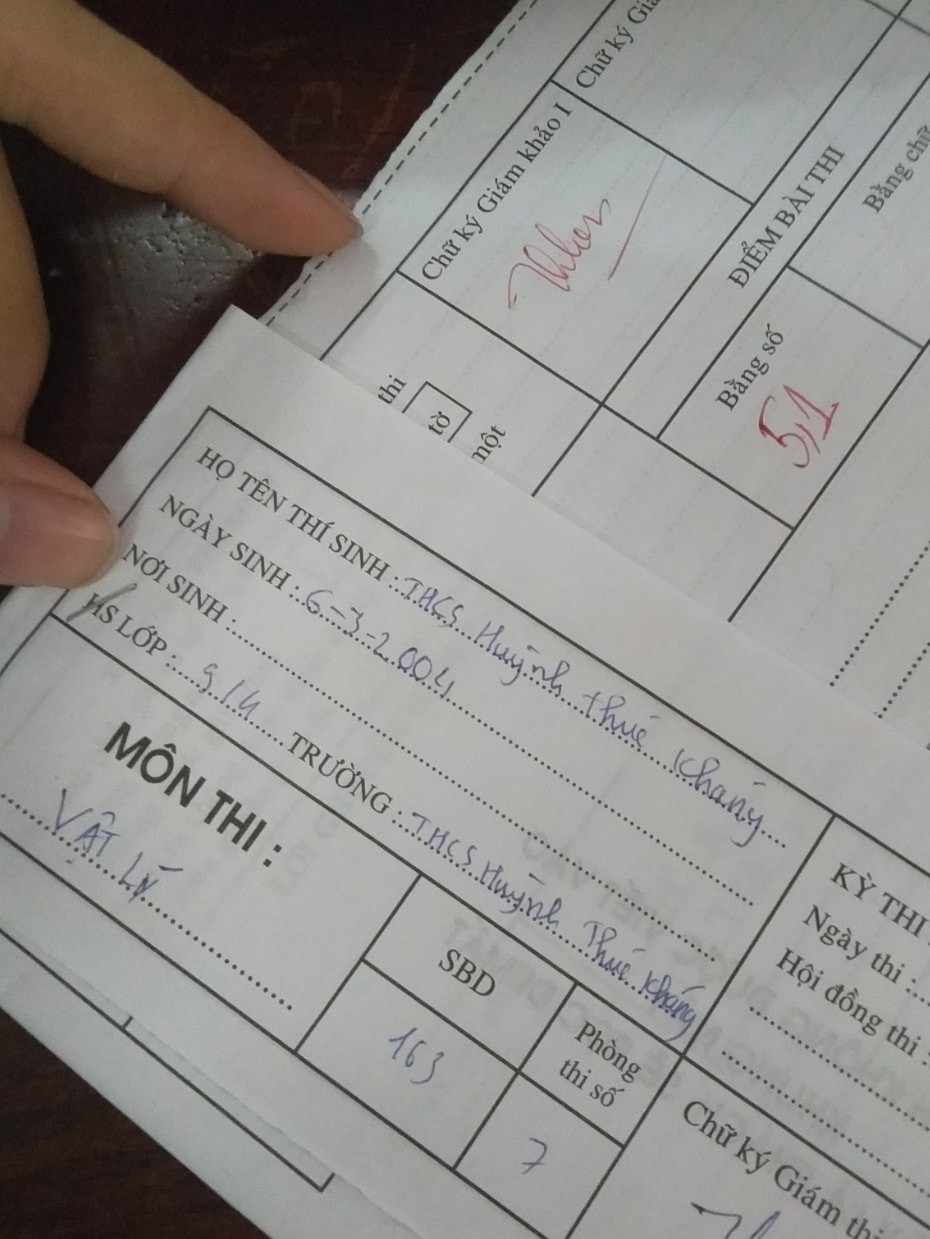 Chữ ký Giám khảo I
Chữ ký Giá
ĐIỂM BÀI THI
Bằng số
Bằng chữ
5,1
thi
tờ
một
HỌ TÊN THÍ SINH : THCS Huỳnh thúc Kháng
NGÀY SINH : 6-3-2004
NƠI SINH :
HS LỚP : 9/4 TRƯỜNG : THCS Huỳnh Thúc Kháng
MÔN THI :
VẬT LÝ
SBD
163
Phòng
thi số
7
KỲ THI
Ngày thi :
Hội đồng thi :
Chữ ký Giám thị